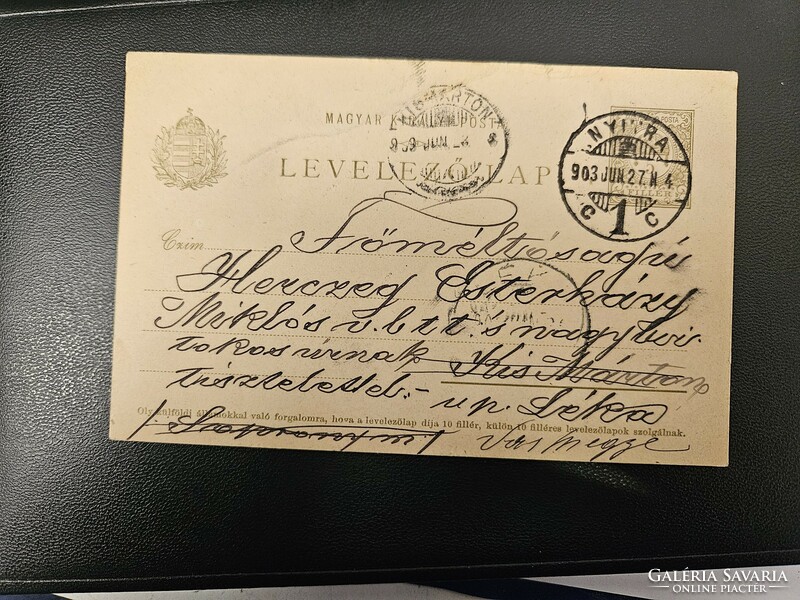 MAGYAR KIR. POSTA
LEVELEZŐ-LAP
KISMARTON
903 JUN.
NYITRA
903 JUN. 27. N 4
C 1 C
POSTA
FILLÉR
Czim
Főméltóságú
Herczeg Esterházy
Miklós v.b.t.t. s nagybir-
tokos úrnak Kis Márton
tisztelettel.- u.p. Léka
Oly külföldi államokkal való forgalomra, hova a levelezőlap díja 10 fillér, külön 10 filléres levelezőlapok szolgálnak.
/Sopron m/ Vas megye
GALÉRIA SAVARIA
ONLINE PIACTÉR